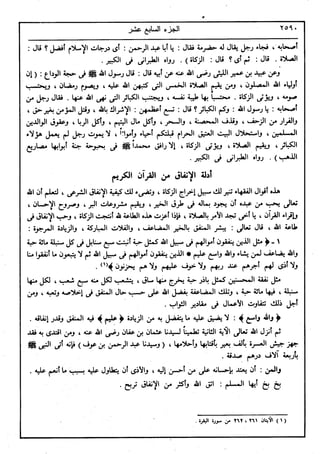 ٢٥٩٠ الجزء السابع عشر
أصحابه ، فجاء رجل يقال له حضرمة فقال : يا أبا عبد الرحمن : أى درجات الإسلام أفضل ؟ قال :
الصلاة . قال : ثم أى ؟ قال : الزكاة ) . رواه الطبرانى فى الكبير .
وعن عبيد بن عمير الليثى رضى الله عنه عن أبيه قال : قال رسول الله ﷺ فى حجة الوداع : ( إن
أولياء الله المصلون ، ومن يقيم الصلاة الخمس التى كتبهن الله عليه ، ويصوم رمضان ، ويحتسب
صومه ، ويؤتى الزكاة . محتسباً بها طيبة نفسه ، ويجتنب الكبائر التى نهى الله عنها . فقال رجل من
أصحابه : يا رسول الله : وكم الكبائر ؟ قال : تسع أعظمهن : الإشراك بالله ، وقتل المؤمن بغير حق ،
والفرار من الزحف ، وقذف المحصنة ، والسحر ، وأكل مال اليتيم ، وأكل الربا ، وعقوق الوالدين
المسلمين ، واستحلال البيت العتيق الحرام قبلتكم أحياء وأمواتاً ، لا يموت رجل لم يعمل هؤلاء
الكبائر ، ويقيم الصلاة ، ويؤتى الزكاة ، إلا رافق محمداً ﷺ فى بحبوحة جنة أبوابها مصاريع
الذهب ) . رواه الطبرانى فى الكبير .
أدلة الإنفاق من القرآن الكريم
هذه أقوال الفقهاء تنير لك سبيل إخراج الزكاة ، وتضىء لك كيفية الإنفاق الشرعى ، لتعلم أن الله
تعالى يحب من عبده أن يجود بماله فى طرق الخير ، ويقيم مشروعات البر ، وصروح الإحسان ،
وإقراء القرآن ، يا أخى تجد الأمر بالصلاة ، فإذا أعزت هذه الطاعة لله أنتجت الزكاة ، وحب الإنفاق فى
طاعة الله ، قال تعالى : يبشر المنفق بالخير المضاعف ، والغلات المباركة ، والزيادة المرجوة :
١ - ﴿ مثل الذين ينفقون أموالهم فى سبيل الله كمثل حبة أنبتت سبع سنابل فى كل سنبلة مائة حبة
والله يضاعف لمن يشاء والله واسع عليم * الذين ينفقون أموالهم فى سبيل الله ثم لا يتبعون ما أنفقوا منا
ولا أذى لهم أجرهم عند ربهم ولا خوف عليهم ولا هم يحزنون ﴾(١) .
مثل نفقة المحسنين كمثل باذر حبة يخرج منها ساق ، يتشعب لكل منه سبع شعب ، لكل منها
سنبلة ، فيها مائة حبة ، وتلك المضاعفة بفضل الله على حسب حال المنفق فى إخلاصه وتعبه ، ومن
أجل ذلك تتفاوت الأعمال فى مقادير الثواب .
﴿ والله واسع ﴾ : لا يضيق عليه ما يتفضل به من الزيادة ﴿ عليم ﴾ فيه المنفق وقدر إنفاقه .
ثم أنزل الله تعالى الآية الثانية تطميناً لسيدنا عثمان بن عفان رضى الله عنه ، ومن اقتدى به فقد
جهز جيش العسرة بألف بعير بأقتابها وأحلاسها ، ( وسيدنا عبد الرحمن بن عوف ) فإنه أتى النبى ﷺ
بأربعة آلاف درهم صدقة .
والمن : أن يعتد بإحسانه على من أحسن إليه ، والأذى أن يتطاول عليه بسبب ما أنعم عليه .
بخ بخ أيها المسلم : اتق الله وأكثر من الإنفاق تربح .
(١) الآيتان ٢٦١ ، ٢٦٢ من سورة البقرة .